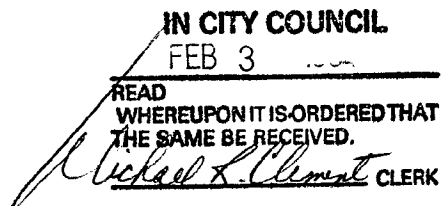 IN CITY COUNCIL
FEB 3
READ
WHEREUPON IT IS ORDERED THAT
THE SAME BE RECEIVED.
Michael R. Clement CLERK